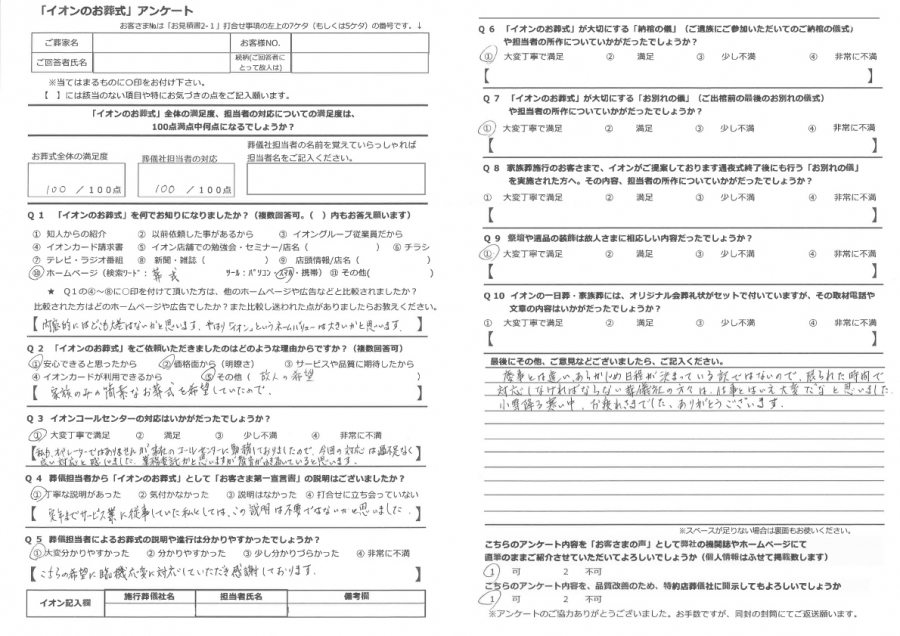 「イオンのお葬式」アンケート
お客さまNo.は「お見積書2-1」打合せ事項の左上の7ケタ（もしくは5ケタ）の番号です。↓
ご葬家名
お客様NO.
ご回答者氏名
続柄(ご回答者にとって故人は)
※当てはまるものに○印をお付け下さい。
【　】には該当のない項目や特にお気づきの点をご記入願います。
「イオンのお葬式」全体の満足度、担当者の対応についての満足度は、
100点満点中何点になるでしょうか？
お葬式全体の満足度
葬儀社担当者の対応
葬儀社担当者の名前を覚えていらっしゃれば
担当者名をご記入ください。
100 ／100点
100 ／100点
Q 1　「イオンのお葬式」を何でお知りになりましたか？（複数回答可。(　) 内もお答え願います）
① 知人からの紹介　② 以前依頼した事があるから　③ イオングループ従業員だから
④ イオンカード請求書　⑤ イオン店舗での勉強会・セミナー/店名（　）　⑥ チラシ
⑦ テレビ・ラジオ番組　⑧ 新聞・雑誌（　）　⑨ 店頭情報/店名（　）
⑩ ホームページ（検索ワード：葬式　ツール：パソコン・スマホ・携帯）　⑪ その他(　)
★ Q１の④～⑧に○印を付けて頂いた方は、他のホームページや広告などと比較されましたか？
比較された方はどのホームページや広告でしたか？また比較し迷われた点がありましたらお教えください。
【内容的にはどこも大差はないかと思います。やはり「イオン」というネームバリューは大きいかと思います。】
Q 2　「イオンのお葬式」をご依頼いただきましたのはどのような理由からですか？（複数回答可）
① 安心できると思ったから　② 価格面から（明瞭さ）　③ サービスや品質に期待したから
④ イオンカードが利用できるから　⑤ その他（故人の希望　）
【家族のみの簡素なお葬式を希望していたので。】
Q 3　イオンコールセンターの対応はいかがだったでしょうか？
① 大変丁寧で満足　② 満足　③ 少し不満　④ 非常に不満
【私も、オペレーターではありませんが貴社のコールセンターに勤務しておりましたので、今回の対応は過不足なく
良い対応と感じました。業務委託かと思いますが教育が行き届いていると思います。】
Q 4　葬儀担当者から「イオンのお葬式」として「お客さま第一宣言書」の説明はございましたか？
① 丁寧な説明があった　② 気付かなかった　③ 説明はなかった　④ 打合せに立ち会っていない
【定年までサービス業に従事していた私としては、この説明は不要ではないかと思いました。】
Q 5　葬儀担当者によるお葬式の説明や進行は分かりやすかったでしょうか？
① 大変分かりやすかった　② 分かりやすかった　③ 少し分かりづらかった　④ 非常に不満
【こちらの希望に臨機応変に対応していただき感謝しております。】
イオン記入欄
施行葬儀社名
担当者氏名
備考欄
Q 6　「イオンのお葬式」が大切にする「納棺の儀」（ご遺族にご参加いただいてのご納棺の儀式）
や担当者の所作についていかがだったでしょうか？
① 大変丁寧で満足　② 満足　③ 少し不満　④ 非常に不満
【　】
Q 7　「イオンのお葬式」が大切にする「お別れの儀」（ご出棺前の最後のお別れの儀式）
や担当者の所作についていかがだったでしょうか？
① 大変丁寧で満足　② 満足　③ 少し不満　④ 非常に不満
【　】
Q 8　家族葬施行のお客さまで、イオンがご提案しております通夜式終了後にも行う「お別れの儀」
を実施された方へ。その内容、担当者の所作についていかがだったでしょうか？
① 大変丁寧で満足　② 満足　③ 少し不満　④ 非常に不満
【　】
Q 9　祭壇や遺品の装飾は故人さまに相応しい内容だったでしょうか？
① 大変丁寧で満足　② 満足　③ 少し不満　④ 非常に不満
【　】
Q 10　イオンの一日葬・家族葬には、オリジナル会葬礼状がセットで付いていますが、その取材電話や
文章の内容はいかがだったでしょうか？
① 大変丁寧で満足　② 満足　③ 少し不満　④ 非常に不満
【　】
最後にその他、ご意見などございましたら、ご記入ください。
慶事とは違い、あらかじめ日程が決まっている訳ではないので、限られた時間で
対応しなければならない葬儀社の方々は、仕事とはいえ大変だなと思いました。
小雪降る寒い中、お疲れさまでした、ありがとうございます。
※スペースが足りない場合は裏面もお使いください。
こちらのアンケート内容を「お客さまの声」として弊社の機関誌やホームページにて
直筆のままご紹介させていただいてよろしいでしょうか（個人情報はふせて掲載致します）
1　可　2　不可
こちらのアンケート内容を、品質改善のため、特約店葬儀社に開示してもよろしいでしょうか
1　可　2　不可
※アンケートのご協力ありがとうございました。お手数ですが、同封の封筒にてご返送願います。